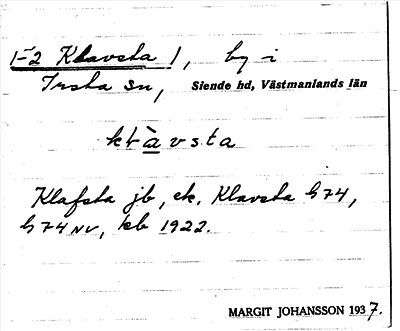 1-2 Klavsta /, by i
Irsta sn, Siende hd, Västmanlands län
klàvsta
Klafsta jb, ek. Klavsta G 74,
G 74 NV, kb 1922.
MARGIT JOHANSSON 1937.